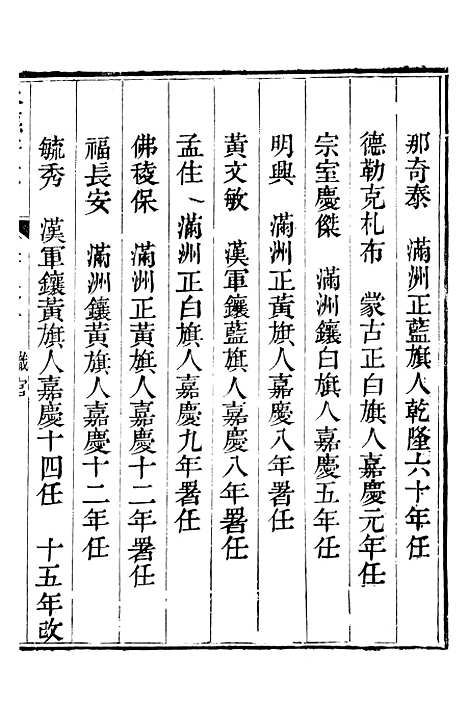 那奇泰　滿洲正藍旗人乾隆六十年任
德勒克札布　蒙古正白旗人嘉慶元年任
宗室慶傑　滿洲鑲白旗人嘉慶五年任
明興　滿洲正黃旗人嘉慶八年署任
黃文敏　漢軍鑲藍旗人嘉慶八年署任
孟住　滿洲正白旗人嘉慶九年署任
佛稜保　滿洲正黃旗人嘉慶十二年署任
福長安　滿洲鑲黃旗人嘉慶十二年任
毓秀　漢軍鑲黃旗人嘉慶十四任　十五年改
職官